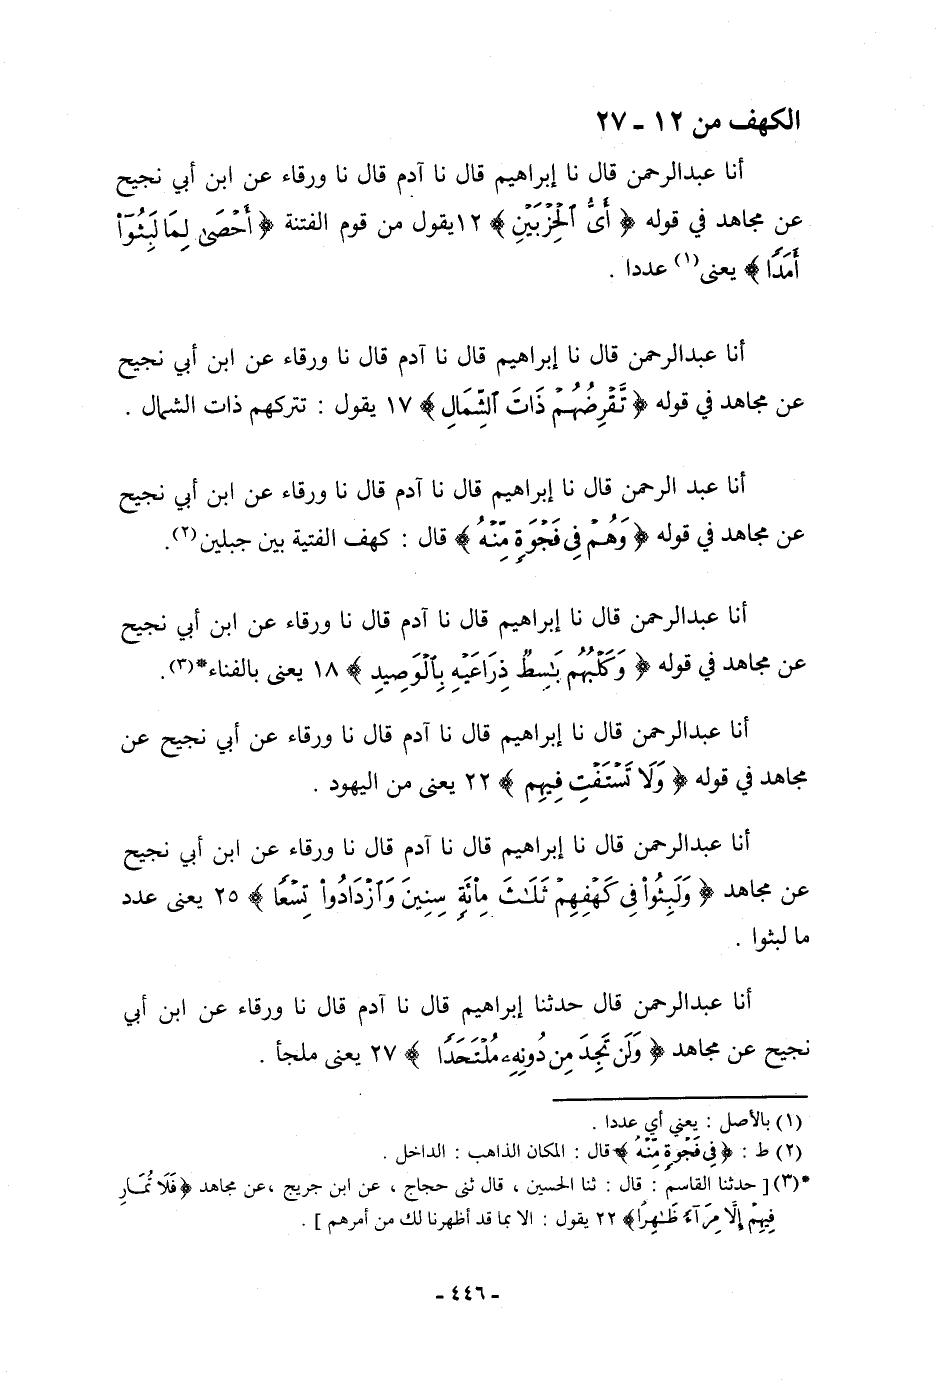 الكهف من ١٢ - ٢٧
أنا عبدالرحمن قال نا إبراهيم قال نا آدم قال نا ورقاء عن ابن أبي نجيح
عن مجاهد في قوله ﴿ أَىُّ ٱلْحِزْبَيْنِ ﴾ ١٢يقول من قوم الفتنة ﴿ أَحْصَىٰ لِمَا لَبِثُوٓا۟
أَمَدًا ﴾ يعنى(١) عددا .
أنا عبدالرحمن قال نا إبراهيم قال نا آدم قال نا ورقاء عن ابن أبي نجيح
عن مجاهد في قوله ﴿ تَّقْرِضُهُمْ ذَاتَ ٱلشِّمَالِ ﴾ ١٧ يقول : تتركهم ذات الشمال .
أنا عبد الرحمن قال نا إبراهيم قال نا آدم قال نا ورقاء عن ابن أبي نجيح
عن مجاهد في قوله ﴿ وَهُمْ فِى فَجْوَةٍ مِّنْهُ ﴾ قال : كهف الفتية بين جبلين(٢).
أنا عبدالرحمن قال نا إبراهيم قال نا آدم قال نا ورقاء عن ابن أبي نجيح
عن مجاهد في قوله ﴿ وَكَلْبُهُم بَٰسِطٌ ذِرَاعَيْهِ بِٱلْوَصِيدِ ﴾ ١٨ يعنى بالفناء*(٣).
أنا عبدالرحمن قال نا إبراهيم قال نا آدم قال نا ورقاء عن أبي نجيح عن
مجاهد في قوله ﴿ وَلَا تَسْتَفْتِ فِيهِم ﴾ ٢٢ يعنى من اليهود .
أنا عبدالرحمن قال نا إبراهيم قال نا آدم قال نا ورقاء عن ابن أبي نجيح
عن مجاهد ﴿ وَلَبِثُوا۟ فِى كَهْفِهِمْ ثَلَٰثَ مِا۟ئَةٍ سِنِينَ وَٱزْدَادُوا۟ تِسْعًا ﴾ ٢٥ يعنى عدد
ما لبثوا .
أنا عبدالرحمن قال حدثنا إبراهيم قال نا آدم قال نا ورقاء عن ابن أبي
نجيح عن مجاهد ﴿ وَلَن تَجِدَ مِن دُونِهِۦ مُلْتَحَدًا ﴾ ٢٧ يعنى ملجأ .
(١) بالأصل : يعني أي عددا .
(٢) ط : ﴿ فِى فَجْوَةٍ مِّنْهُ ﴾ قال : المكان الذاهب : الداخل .
*(٣) [ حدثنا القاسم : قال : ثنا الحسين ، قال ثنى حجاج ، عن ابن جريج ،عن مجاهد ﴿ فَلَا تُمَارِ
فِيهِمْ إِلَّا مِرَآءً ظَٰهِرًا﴾ ٢٢ يقول : الا بما قد أظهرنا لك من أمرهم ] .
- ٤٤٦ -